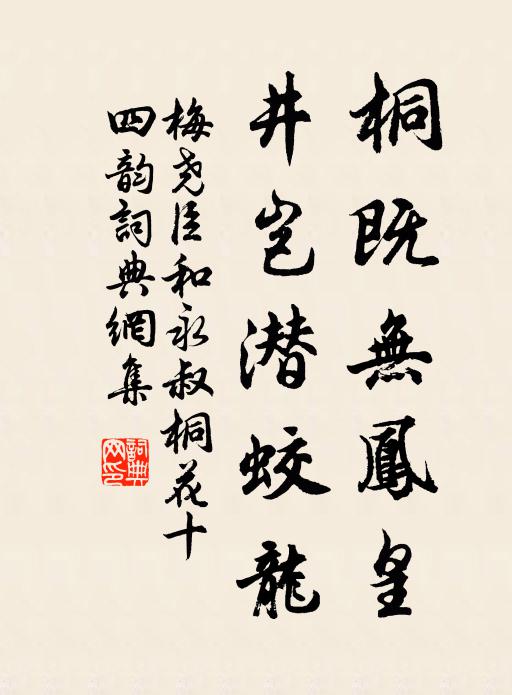 桐既無鳳皇
井岂潜蛟龍
梅尧臣和永叔桐花十
四韵詞典網集
詞典
网印